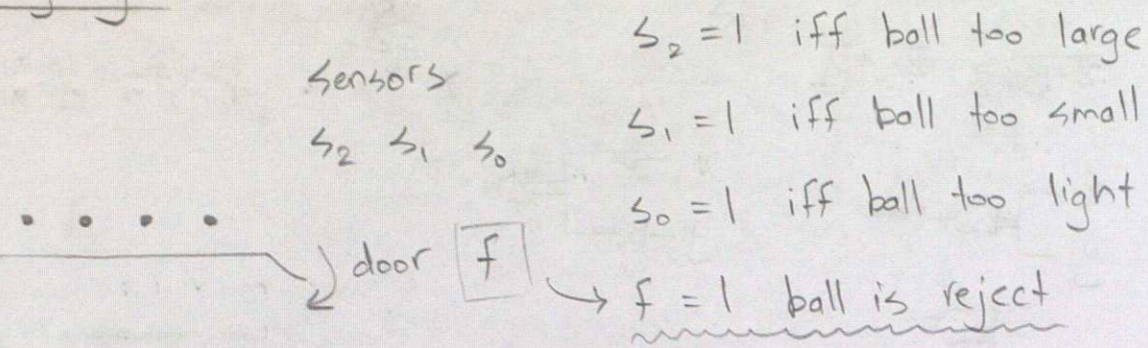 sensors
s₂ s₁ s₀
s₂ = 1 iff ball too large
s₁ = 1 iff ball too small
s₀ = 1 iff ball too light
door f
f = 1 ball is reject